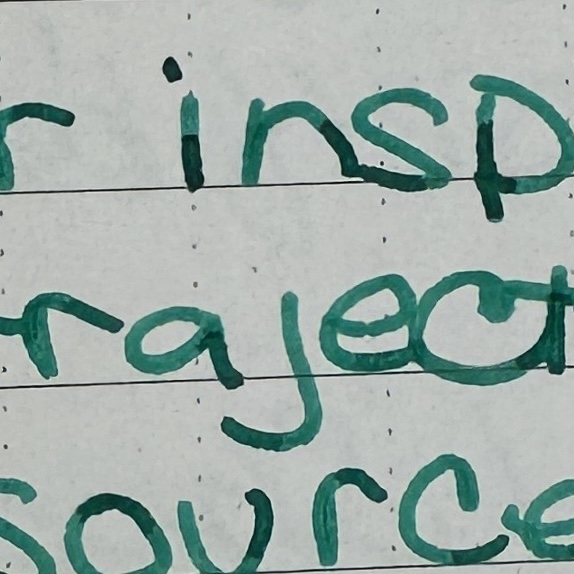 r insp
raject
source